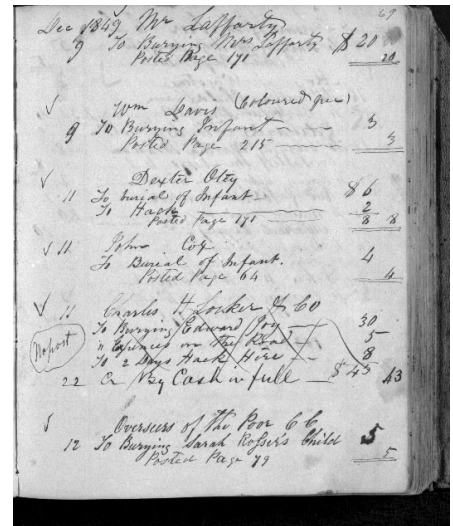 69
Dec 1849 Mr Lafferty
9 To Burying Mrs Lafferty $20
Posted Page 171 20
✓ Wm Davis (Coloured free)
9 To Burying Infant — — 3
Posted Page 215 3
✓ Dexter Otey
11 To burial of Infant $6
To Hack 2
Posted Page 171 8 8
✓ 11 John Cox
To Burial of Infant. 4
Posted Page 64 4
✓ 11 Charles H Locker & Co
To Burying Edward Joy — 30
" Expences on the Road — 5
Nopost
To 2 Days Hack Hire — 8
22 Cr By Cash in full — $43 43
✓ Overseers of the Poor C C
12 To Burying Sarah Rosser's Child 5
Posted Page 79 5